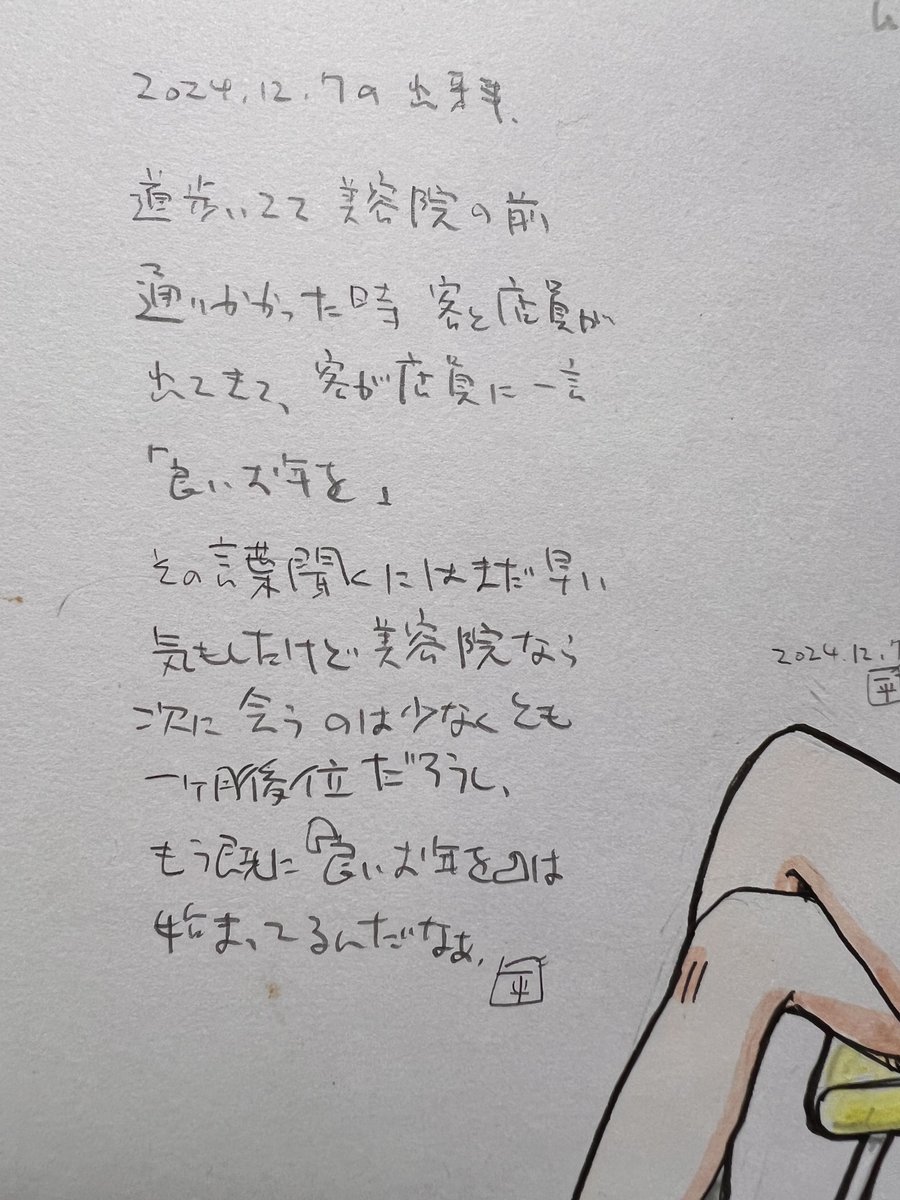 2024.12.7の出来事.
道歩いてて美容院の前
通りかかった時 客と店員が
出てきて、客が店員に一言
「良いお年を」
その言葉聞くにはまだ早い
気もしたけど美容院なら
次に会うのは少なくとも
一ヶ月後位だろうし、
もう既に『良いお年を』は
始まってるんだなぁ.
平
2024.12.7
平